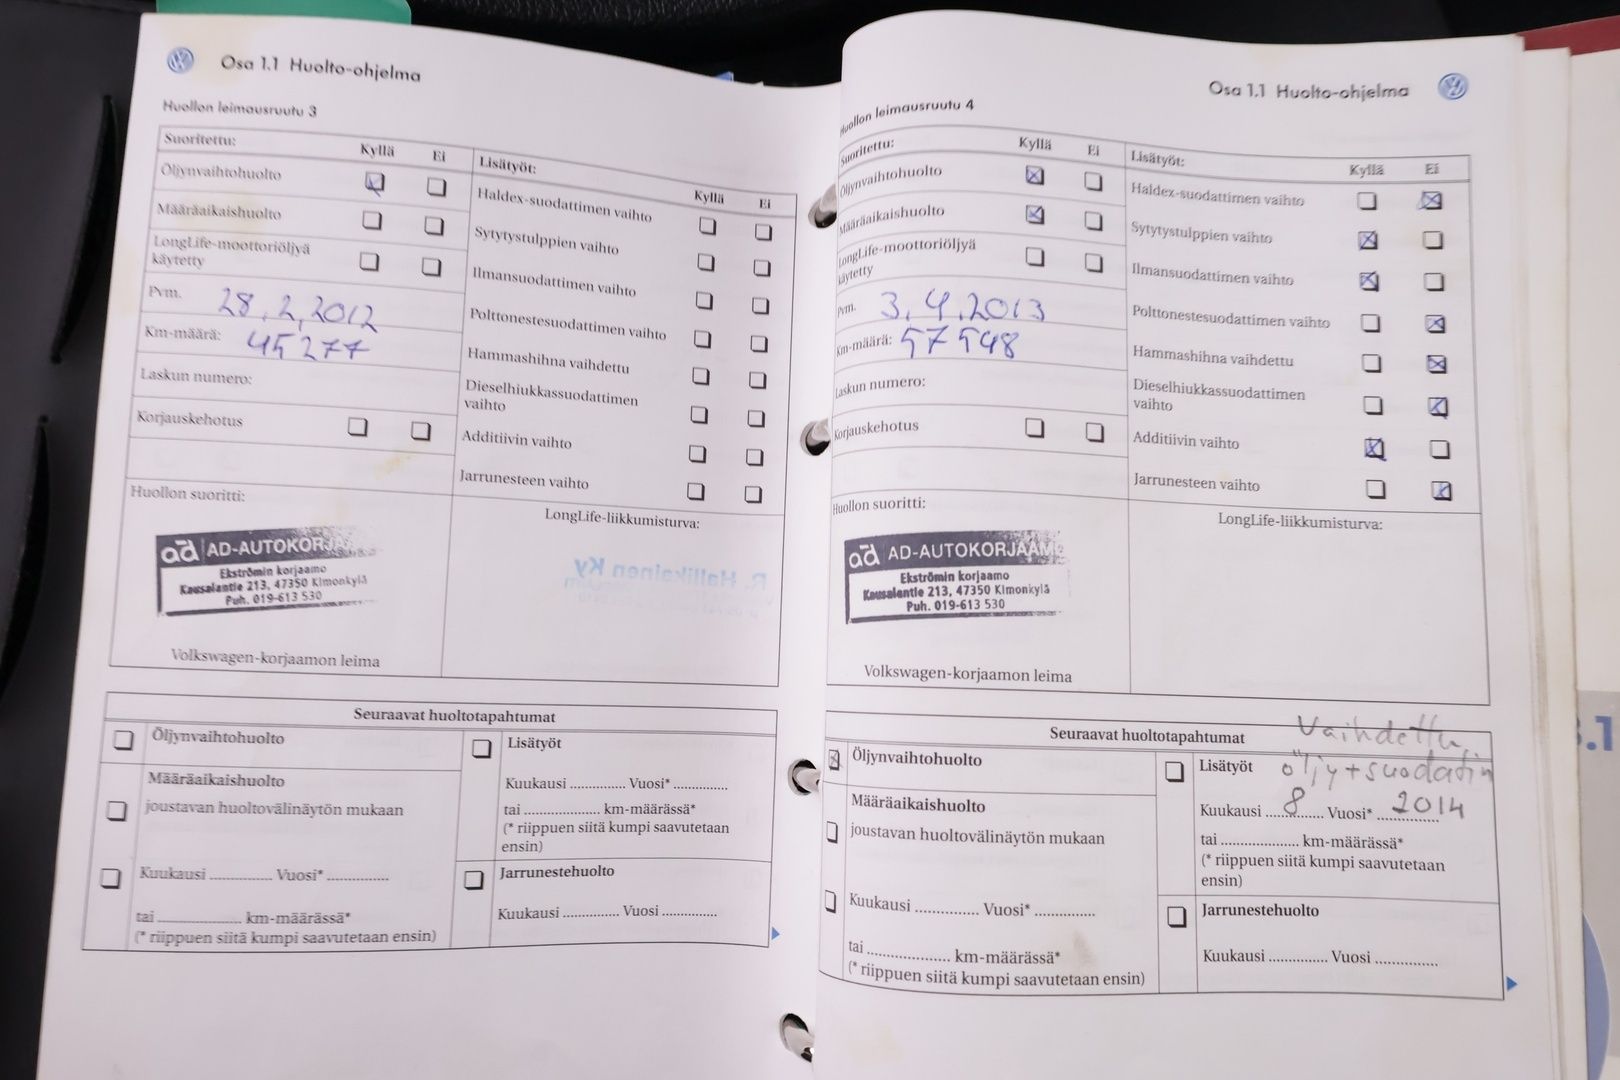 Osa 1.1 Huolto-ohjelma
Huollon leimausruutu 3
Suoritettu:
Kyllä Ei
Öljynvaihtohuolto
Määräaikaishuolto
LongLife-moottoriöljyä
käytetty
Pvm. 28.2.2012
Km-määrä: 45277
Laskun numero:
Korjauskehotus
Lisätyöt:
Kyllä Ei
Haldex-suodattimen vaihto
Sytytystulppien vaihto
Ilmansuodattimen vaihto
Polttonestesuodattimen vaihto
Hammashihna vaihdettu
Dieselhiukkassuodattimen
vaihto
Additiivin vaihto
Jarrunesteen vaihto
Huollon suoritti:
ad AD-AUTOKORJA
Ekströmin korjaamo
Kausalantie 213, 47350 Kimonkylä
Puh. 019-613 530
Volkswagen-korjaamon leima
LongLife-liikkumisturva:
R. Hallikainen Ky
Seuraavat huoltotapahtumat
Öljynvaihtohuolto
Määräaikaishuolto
joustavan huoltovälinäytön mukaan
Kuukausi .............. Vuosi* ..............
tai .................. km-määrässä*
(* riippuen siitä kumpi saavutetaan ensin)
Lisätyöt
Kuukausi .............. Vuosi* ..............
tai .................. km-määrässä*
(* riippuen siitä kumpi saavutetaan
ensin)
Jarrunestehuolto
Kuukausi .............. Vuosi ..............
Osa 1.1 Huolto-ohjelma
Huollon leimausruutu 4
Suoritettu:
Kyllä Ei
Öljynvaihtohuolto
Määräaikaishuolto
LongLife-moottoriöljyä
käytetty
Pvm. 3.4.2013
Km-määrä: 57548
Laskun numero:
Korjauskehotus
Lisätyöt:
Kyllä Ei
Haldex-suodattimen vaihto
Sytytystulppien vaihto
Ilmansuodattimen vaihto
Polttonestesuodattimen vaihto
Hammashihna vaihdettu
Dieselhiukkassuodattimen
vaihto
Additiivin vaihto
Jarrunesteen vaihto
Huollon suoritti:
ad AD-AUTOKORJAAM
Ekströmin korjaamo
Kausalantie 213, 47350 Kimonkylä
Puh. 019-613 530
Volkswagen-korjaamon leima
LongLife-liikkumisturva:
Seuraavat huoltotapahtumat
Vaihdettu
öljy+suodatin
Öljynvaihtohuolto
Määräaikaishuolto
joustavan huoltovälinäytön mukaan
Kuukausi .............. Vuosi* ..............
tai .................. km-määrässä*
(* riippuen siitä kumpi saavutetaan ensin)
Lisätyöt
Kuukausi 8 Vuosi* 2014
tai .................. km-määrässä*
(* riippuen siitä kumpi saavutetaan
ensin)
Jarrunestehuolto
Kuukausi .............. Vuosi ..............
.1